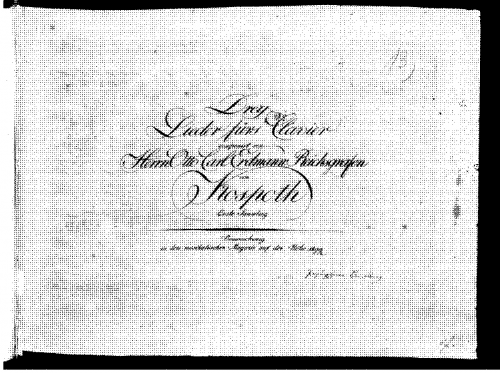 13)
Drey
Lieder fürs Clavier
Herrn Otto Carl Erdmann Reichsgrafen
von
Kospoth
Erste Sammlung
Braunschweig
in dem musikalischen Magazin auf der Höhe